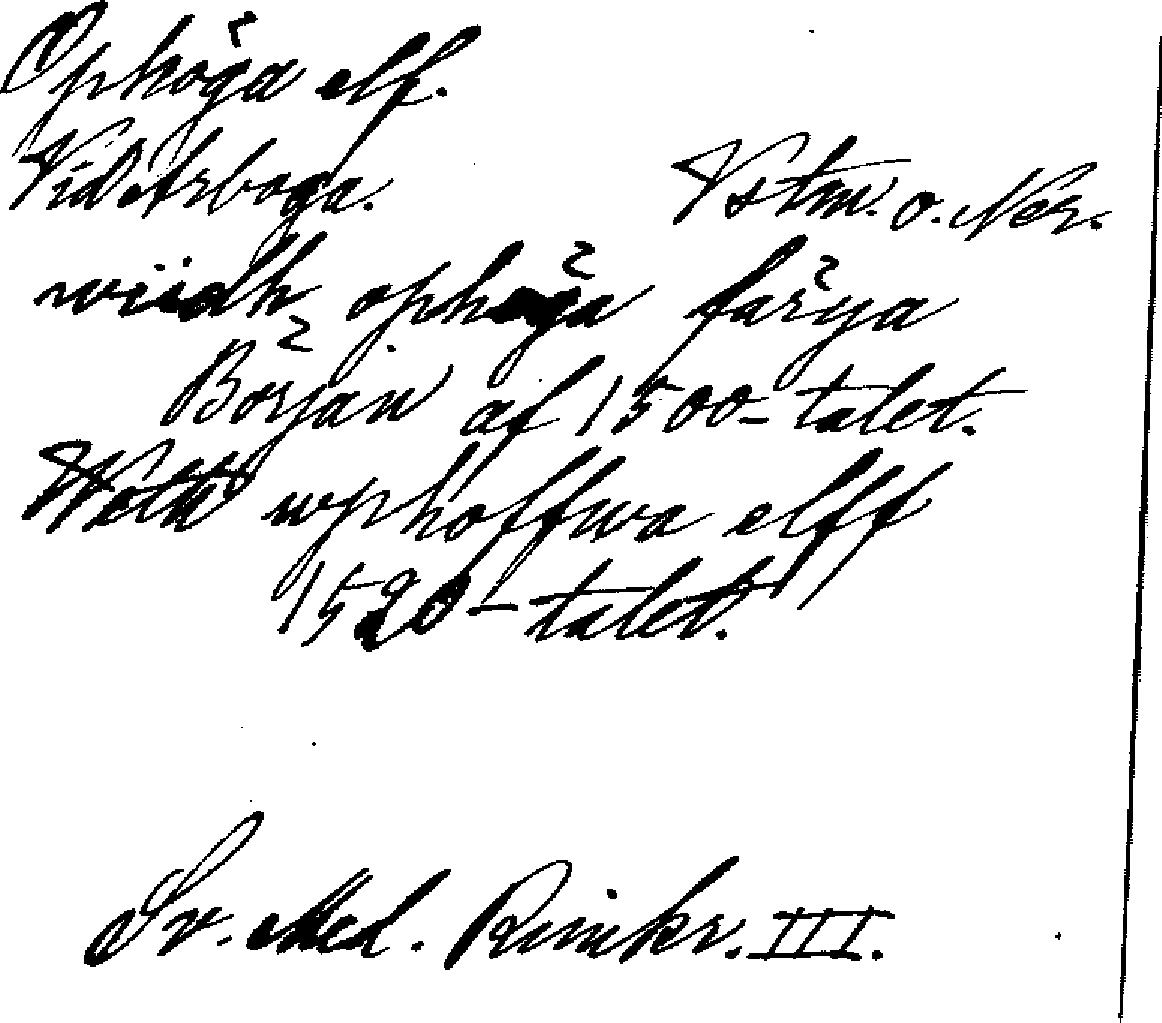 Ophöga elf.
Vid Arboga. Vstm. o. Ner.
wiidh ophøga färya
Början af 1500-talet.
Weth wphoffwa elff
1520-talet.
Sv. Med. Rimkr. III.